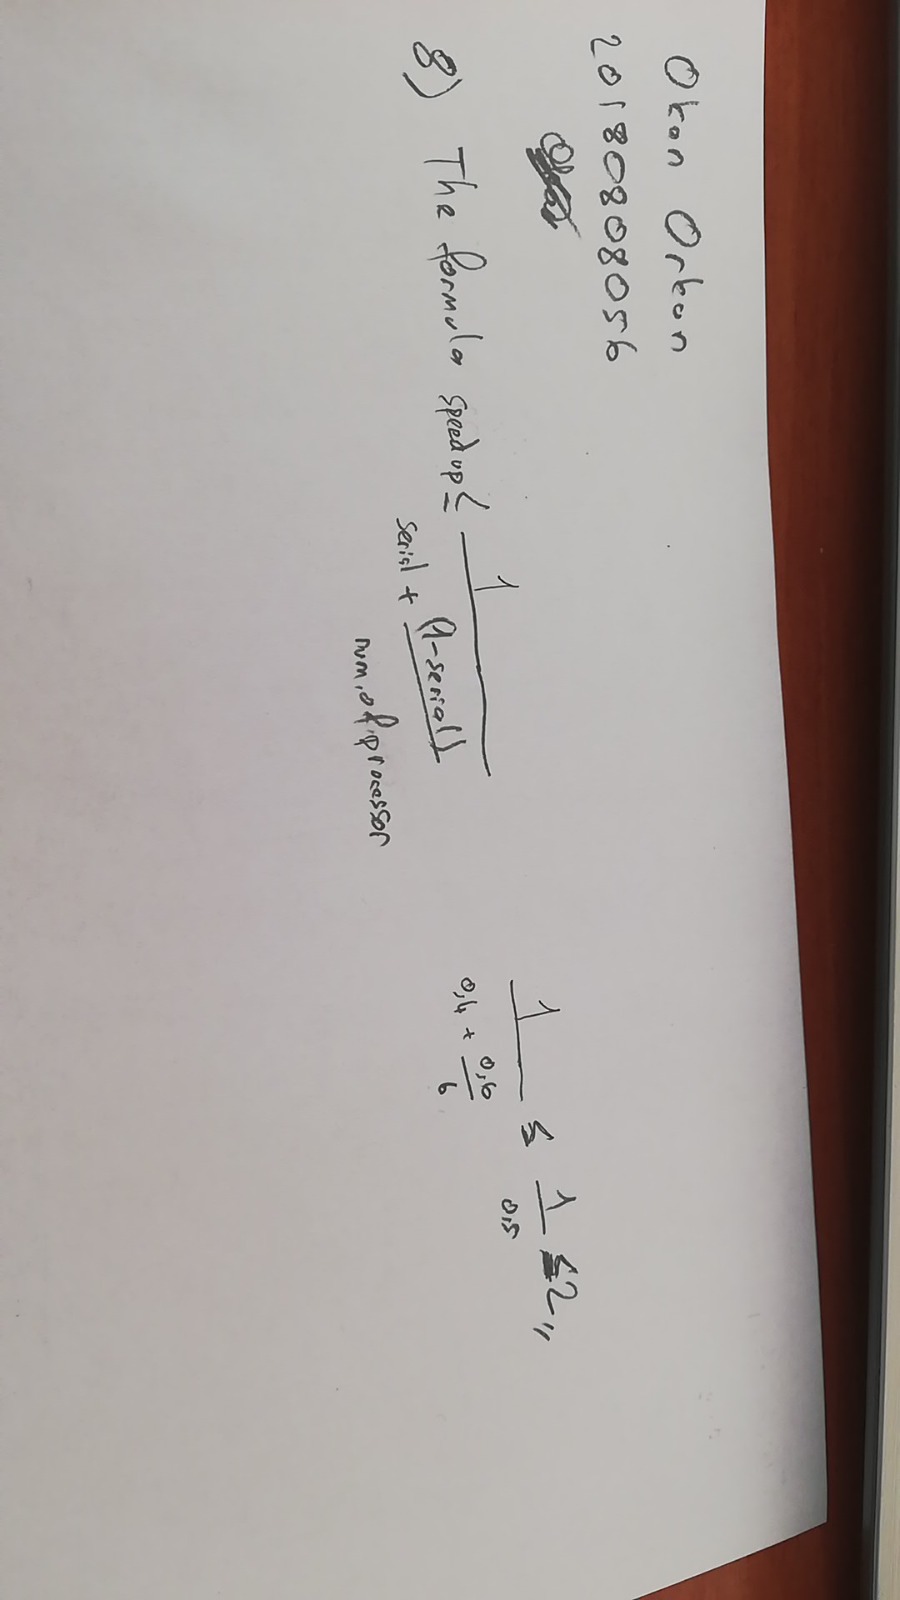 Okan Orkan
20180808056
8) The formula speedup ≤ 1
serial + (1-serial)
num.of.processor
1
0,4 + 0,6
6
≤ 1
0,5
≤ 2 //